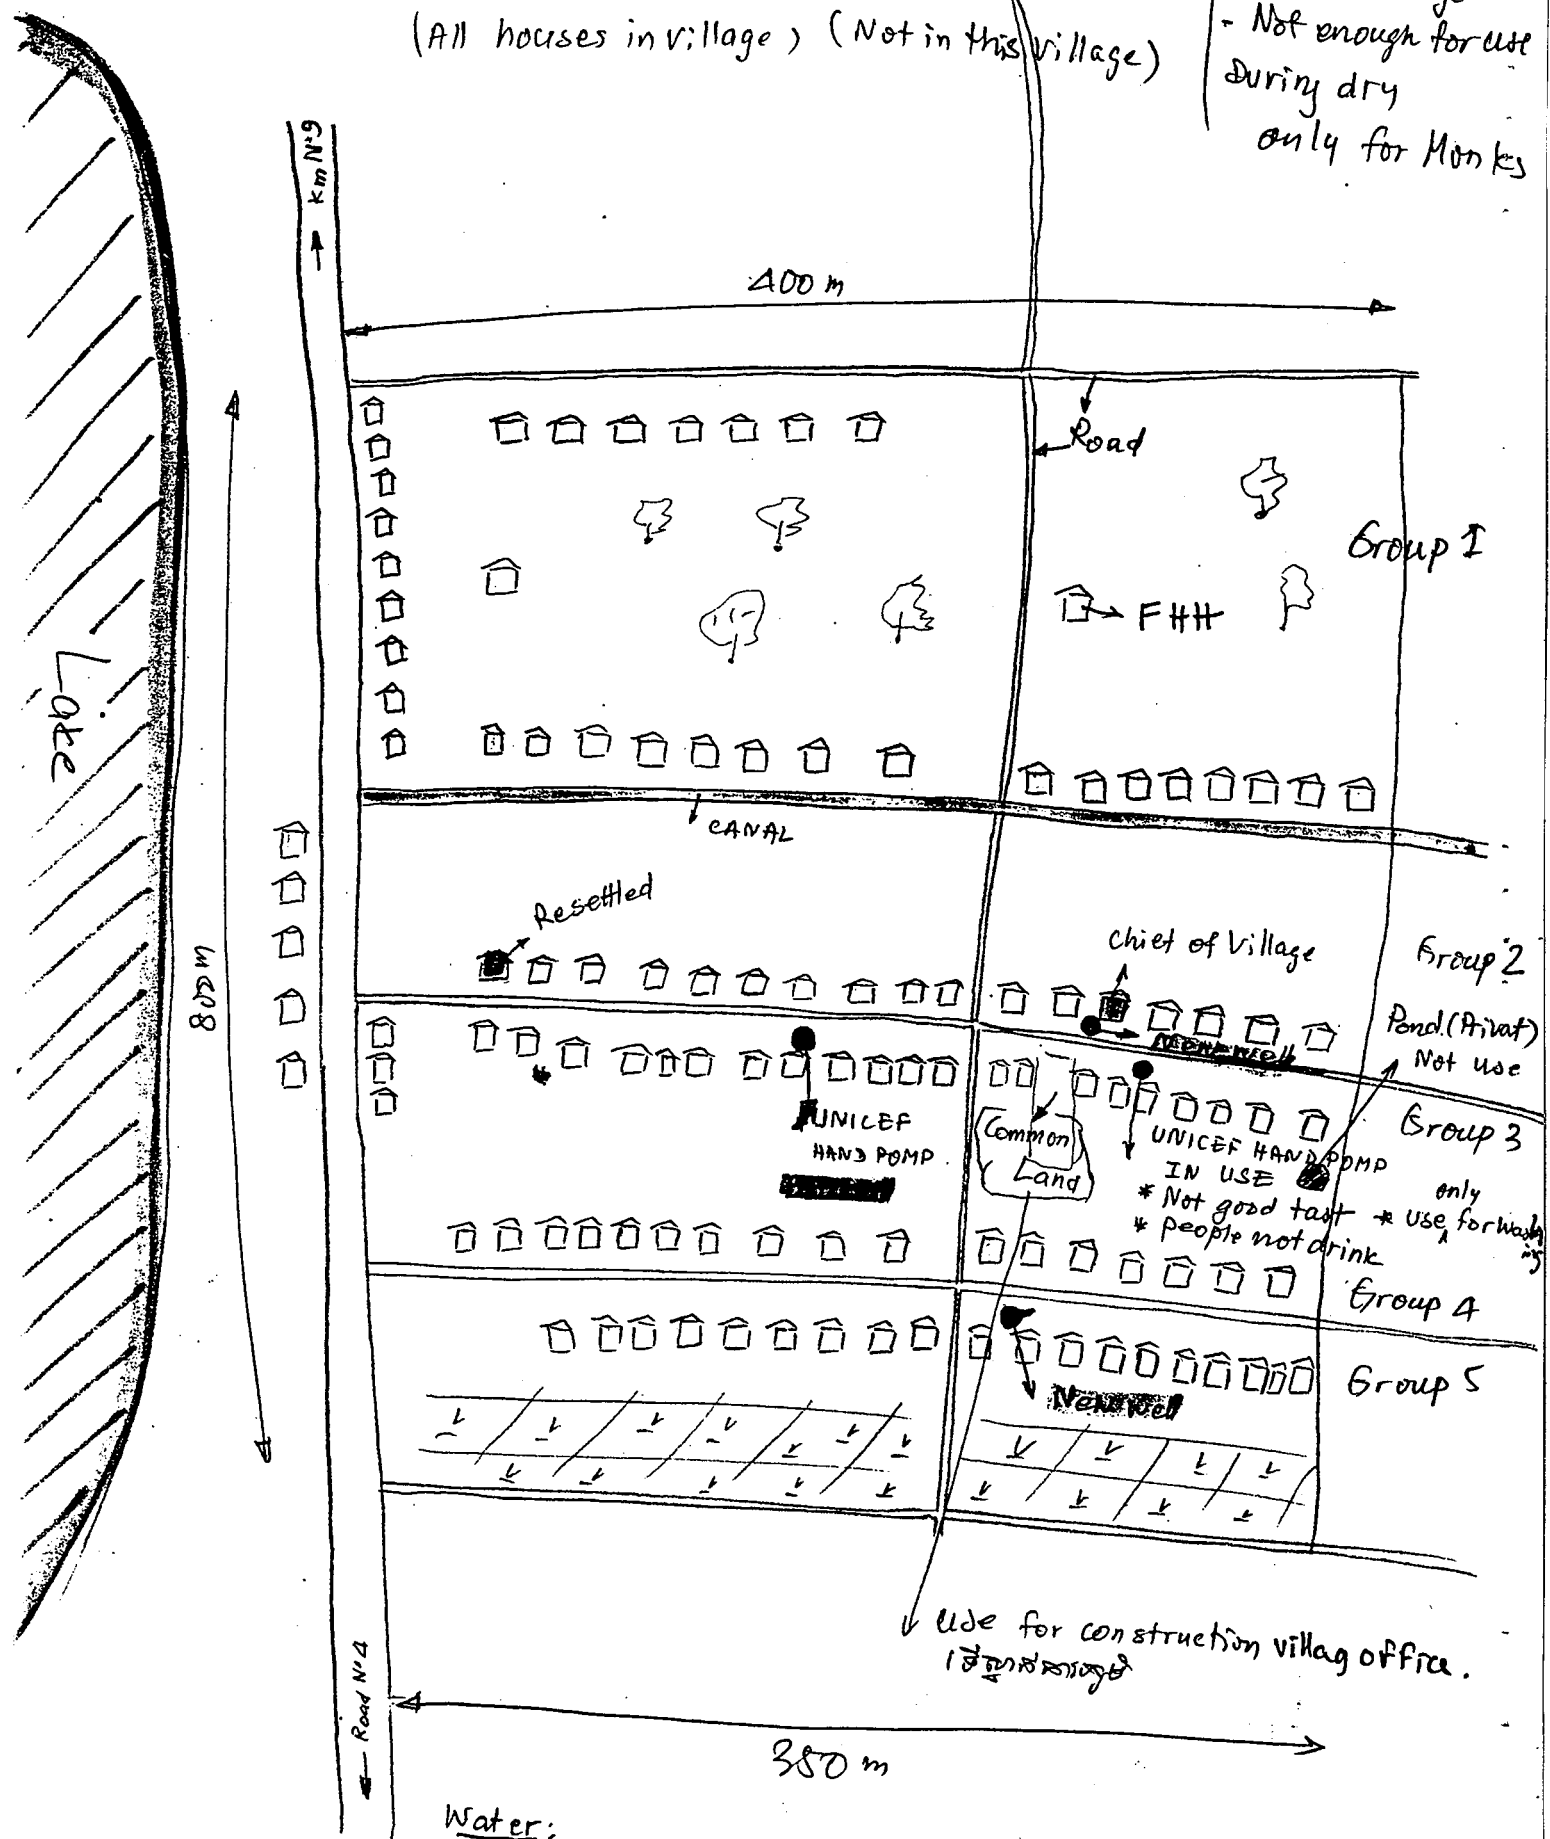 (All houses in village) (Not in this village)
- Not enough for use
During dry
only for Monks
km N°9
400 m
Road
Group 1
FHH
Lake
CANAL
Resettled
Chief of Village
Group 2
Pond.(Privat)
Not use
New well
808 m
UNICEF
HAND POMP
Common
Land
Group 3
UNICEF HAND POMP
IN USE
* Not good tast * use only for washing
* people not drink
Group 4
Group 5
New well
Use for construction villag office.
Road N°4
350 m
Water: